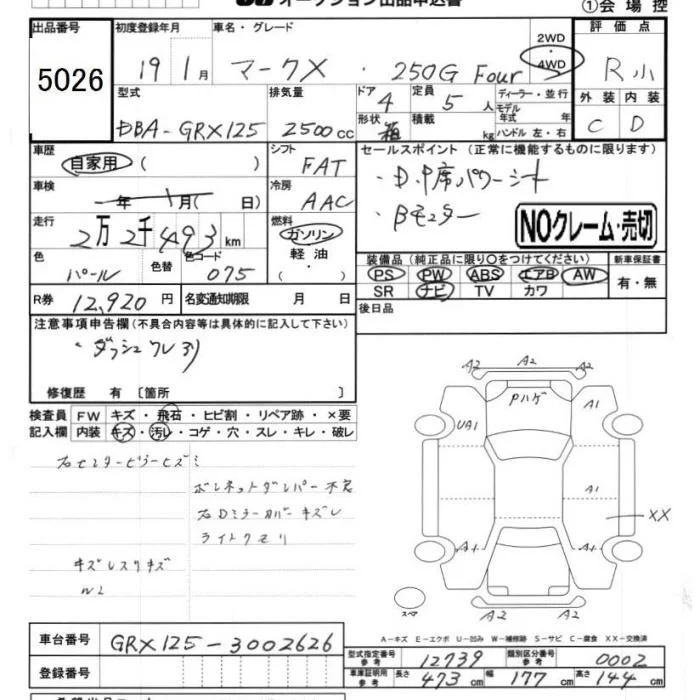 オークション出品申込書 ①会場控
出品番号 初度登録年月 車名・グレード 2WD 評価点
5026 19 1月 マークX・250G Four 4WD R小
型式 排気量 ドア 定員 ディーラー・並行 外装 内装
DBA-GRX125 2500cc 4 5人 モデル年式 年 C D
形状 箱 積載 kg ハンドル 左・右
車歴 シフト セールスポイント(正常に機能するものに限ります)
自家用 ( ) FAT ・D.P席パワーシート
車検 冷房 ・Bモニター
年 1月( 日) AAC NOクレーム・売切
走行 燃料
2万2千493km ガソリン
色 色替 色コード 軽油・ 装備品(純正品に限り○をつけてください) 新車保証書
パール 075 PS PW ABS エアB AW 有・無
SR ナビ TV カワ
R券 12,920円 名変通知期限 月 日 後日品
注意事項申告欄(不具合内容等は具体的に記入して下さい)
・ダッシュワレ有リ
修復歴 有〔箇所 〕
検査員 FW キズ・飛石・ヒビ割・リペア跡・×要
記入欄 内装 キズ・汚レ・コゲ・穴・スレ・キレ・破レ
右センターピラーヒズミ
ボンネットダンパー不良
右Dミラーカバーキズレ
ライトクモリ
キズレスリキズ
W2
A2 A2 A2
Pハゲ A1
UA1
A1
XX
A1 A1
スペア A2 A2
A-キズ E-エクボ U-凹み W-補修跡 S-サビ C-腐食 XX-交換済
車台番号 GRX125-3002626
型式指定番号 参考 12739 類別区分番号 参考 0002
登録番号 車庫証明用 参考 長さ 473cm 幅 177cm 高さ 144cm